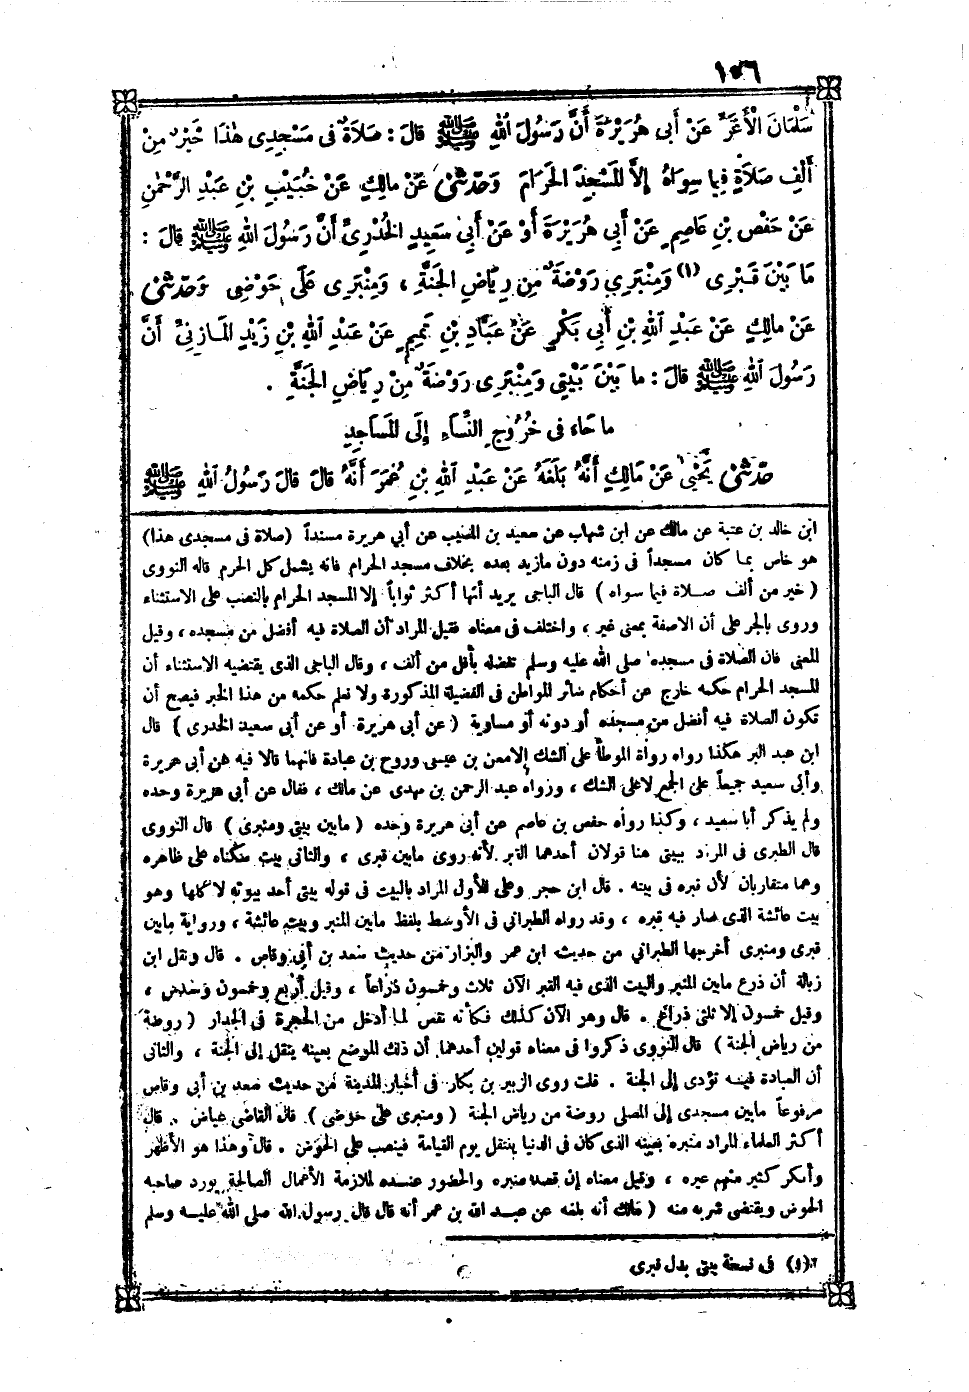 ١٥٦
سَلْمَانَ الْأَغَرِّ عَنْ أَبِى هُرَيْرَةَ أَنَّ رَسُولَ اللهِ ﷺ قَالَ : صَلَاةٌ فى مَسْجِدِى هٰذَا خَيْرٌ مِنْ
أَلْفِ صَلَاةٍ فِيمَا سِوَاهُ إِلاَّ الْمَسْجِدَ الْحَرَامَ وَحَدَّثَنِى عَنْ مَالِكٍ عَنْ خُبَيْبِ بْنِ عَبْدِ الرَّحْمٰنِ
عَنْ حَفْصِ بْنِ عَاصِمٍ عَنْ أَبِي هُرَيْرَةَ أَوْ عَنْ أَبِى سَعِيدٍ الْخُدْرِىِّ أَنَّ رَسُولَ اللهِ ﷺ قَالَ :
مَا بَيْنَ قَبْرِى (١) وَمِنْبَرِي رَوْضَةٌ مِنْ رِيَاضِ الْجَنَّةِ ، وَمِنْبَرِى عَلَى حَوْضِى وَحَدَّثَنِى
عَنْ مَالِكٍ عَنْ عَبْدِ اللهِ بْنِ أَبِى بَكْرٍ عَنْ عَبَّادِ بْنِ تَمِيمٍ عَنْ عَبْدِ اللهِ بْنِ زَيْدٍ الْمَازِنِىِّ أَنَّ
رَسُولَ اللهِ ﷺ قَالَ : مَا بَيْنَ بَيْتِى وَمِنْبَرِى رَوْضَةٌ مِنْ رِيَاضِ الْجَنَّةِ .
ما جَاء فى خُرُوجِ النِّسَاءِ إِلَى الْمَسَاجِدِ
حَدَّثَنِى يَحْيٰى عَنْ مَالِكٍ أَنَّهُ بَلَغَهُ عَنْ عَبْدِ اللهِ بْنِ عُمَرَ أَنَّهُ قَالَ قَالَ رَسُولُ اللهِ ﷺ
ابن خالد بن عتبة عن مالك عن ابن شهاب عن سعيد بن المسيب عن أبي هريرة مسنداً (صلاة فى مسجدى هذا)
هو خاص بما كان مسجداً فى زمنه دون مازيد بعده بخلاف مسجد الحرام فانه يشمل كل الحرم قاله النووى
( خير من ألف صلاة فيما سواه ) قال الباجى يريد أنها أكثر ثواباً إلا المسجد الحرام بالنصب على الاستثناء
وروى بالجر على أن الاصفة بمعنى غير ، واختلف فى معناه فقيل المراد أن الصلاة فيه أفضل من مسجده ، وقيل
المعنى فان الصلاة فى مسجده صلى الله عليه وسلم تفضله بأقل من ألف ، وقال الباجى الذى يقتضيه الاستثناء أن
المسجد الحرام حكمه خارج عن أحكام سائر المواطن فى الفضيلة المذكورة ولا نعلم حكمه من هذا الخبر فيصح أن
تكون الصلاة فيه أفضل من مسجده أو دونه أو مساوية ( عن أبى هريرة أو عن أبى سعيد الخدرى ) قال
ابن عبد البر هكذا رواه رواة الموطأ على الشك إلامعن بن عيسى وروح بن عبادة فانهما قالا فيه عن أبى هريرة
وأبى سعيد جميعاً على الجمع لاعلى الشك ، ورواه عبد الرحمن بن مهدى عن مالك ، فقال عن أبى هريرة وحده
ولم يذكر أبا سعيد ، وكذا رواه حفص بن عاصم عن أبى هريرة وحده ( مابين بيتى ومنبرى ) قال النووى
قال الطبرى فى المراد ببيتى هنا قولان أحدهما القبر لأنه روى مابين قبرى ، والثانى بيت سكناه على ظاهره
وهما متقاربان لأن قبره فى بيته . قال ابن حجر وعلى الأول المراد بالبيت فى قوله بيتى أحد بيوته لا كلها وهو
بيت عائشة الذى صار فيه قبره ، وقد رواه الطبرانى فى الأوسط بلفظ مابين المنبر وبيت عائشة ، ورواية مابين
قبرى ومنبرى أخرجها الطبرانى من حديث ابن عمر والبزار من حديث سعد بن أبى وقاص . قال ونقل ابن
زبالة أن ذرع مابين المنبر والبيت الذى فيه القبر الآن ثلاث وخمسون ذراعاً ، وقيل أربع وخمسون وسدس ،
وقيل خمسون إلا ثلثى ذراع . قال وهو الآن كذلك فكأنه نقص لما أدخل من الحجرة فى الجدار ( روضة
من رياض الجنة ) قال النووى ذكروا فى معناه قولين أحدهما أن ذلك الموضع بعينه ينقل إلى الجنة ، والثانى
أن العبادة فيه تؤدى إلى الجنة . قلت روى الزبير بن بكار فى أخبار المدينة من حديث سعد بن أبى وقاص
مرفوعاً مابين مسجدى إلى المصلى روضة من رياض الجنة ( ومنبرى على حوضى ) قال القاضى عياض . قال
أكثر العلماء المراد منبره بعينه الذى كان فى الدنيا ينتقل يوم القيامة فينصب على الحوض . قال وهذا هو الأظهر
وأنكر كثير منهم غيره ، وقيل معناه إن قصد منبره والحضور عنده لملازمة الأعمال الصالحة يورد صاحبه
الحوض ويقتضى شربه منه ( مالك أنه بلغه عن عبد الله بن عمر أنه قال قال رسول الله صلى الله عليه وسلم
(١) فى نسخة بيتى بدل قبرى